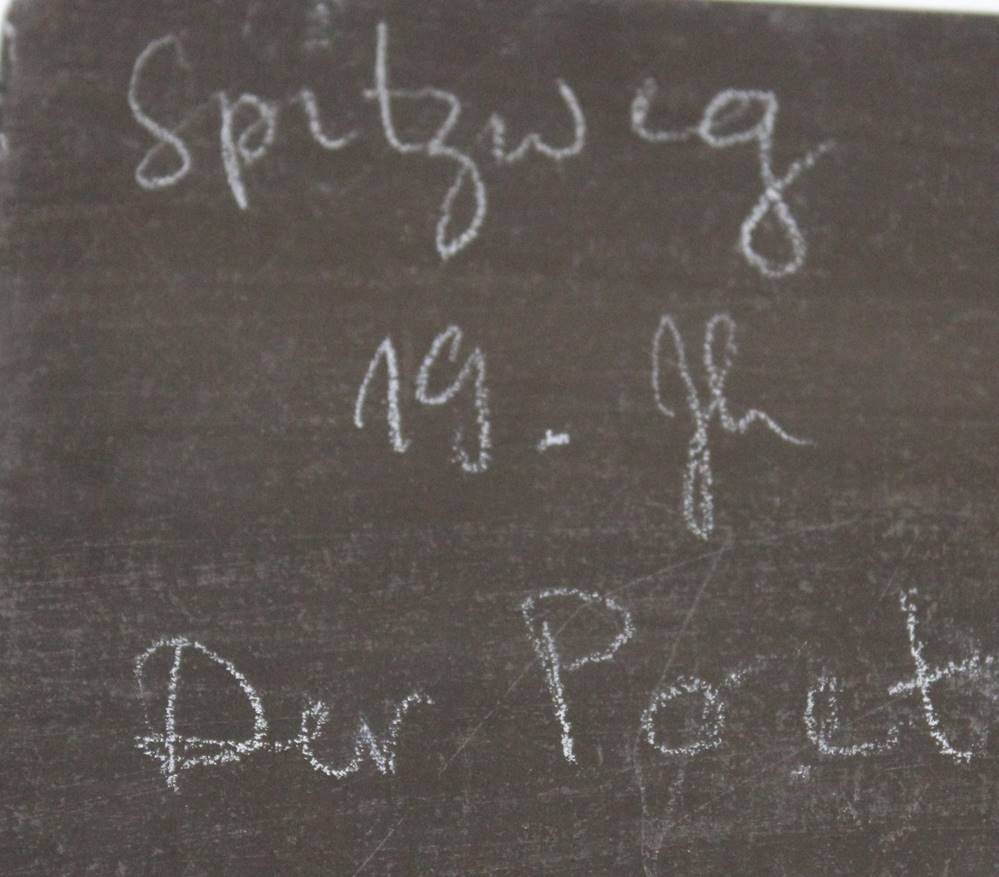 Spitzweg
19. Jh
Der Poet